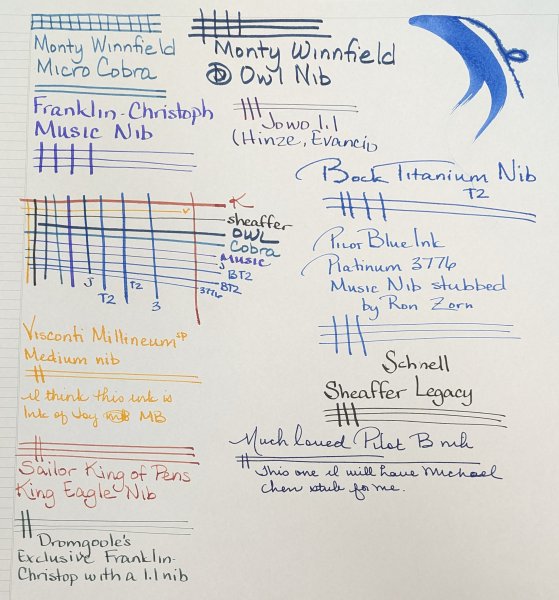 Monty Winnfield
Micro Cobra
Franklin-Christoph
Music Nib
K
V
sheaffer
OWL
Cobra
MUSIC
J
BT2
BT2
3776
J
T2
T2
3
Visconti Millineum SP
Medium nib
I think this ink is
Ink of Joy MB
Sailor King of Pens
King Eagle Nib
Dromgoole's
Exclusive Franklin-
Christop with a 1.1 nib
Monty Winnfield
Owl Nib
Jowo 1.1
(Hinze, Evancio
Bock Titanium Nib
T2
Pilot Blue Ink
Platinum 3776
Music Nib stubbed
by Ron Zorn
Schnell
Sheaffer Legacy
Much loved Pilot B nib
This one I will have Michael
Chen stub for me.